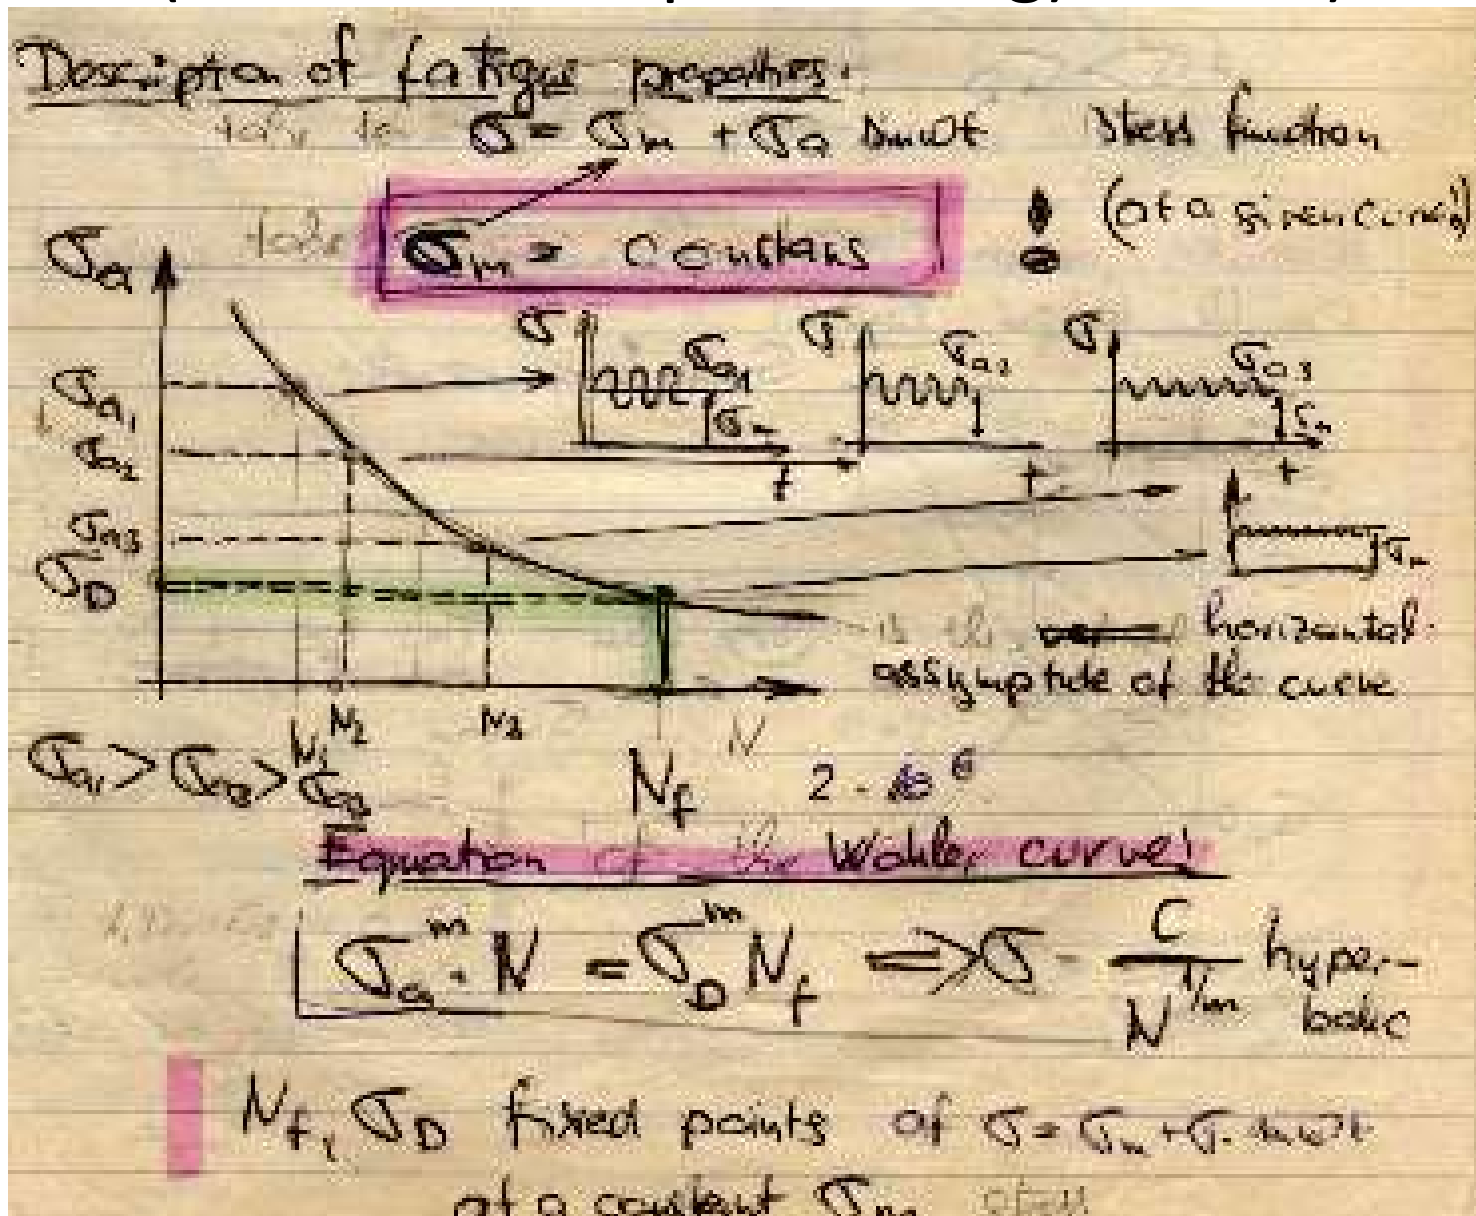 Description of fatigue properthies.
σ = σm + σa sinωt Stress function
(at a given curve!)
σm = constans !
σa
σ σa1 σm t
σ σa2 t
σ σa3 σm t
σa1
σa2
σa3
σD
σm
horizontal
assymptote of the curve
N1 N2 N3 Nf N
σa1 > σa2 > σa3
2 · 10^6
Equation of the Wohler curve!
σa^m · N = σD^m Nf ⇒ σ = C / N^1/m hyper-
bolic
Nf, σD fixed points of σ = σm + σ · sinωt
at a constant σm